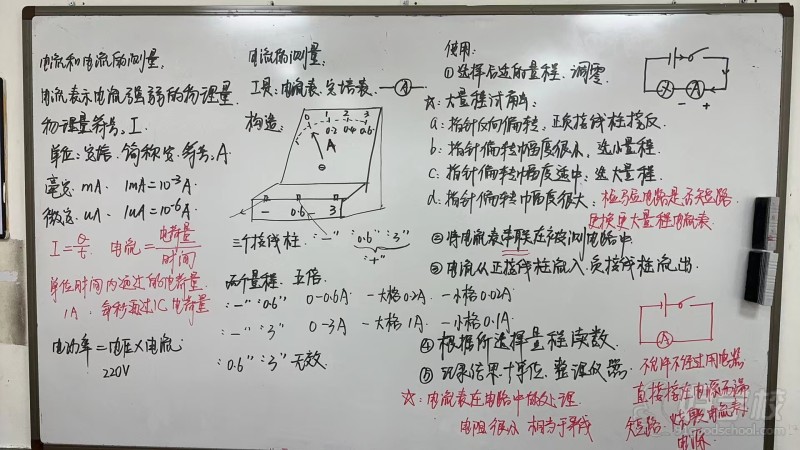 电流和电流的测量
电流表示电流强弱的物理量
物理量符号:I
单位:安培.简称安.符号:A
毫安:mA. 1mA=10⁻³A
微安:uA. 1uA=10⁻⁶A
I=Q/t 电流=电荷量/时间
单位时间内通过的电荷量
1A:每秒通过1C电荷量
电功率=电压×电流
220V
电流的测量:
工具:电流表.安培表. A
构造:
0 1 2 3
0.2 0.4 0.6
A
- 0.6 3
三个接线柱:"-" "0.6" "3"
"+"
两个量程.五倍
"-" "0.6" 0-0.6A 一大格0.2A 一小格0.02A
"-" "3" 0-3A 一大格1A 一小格0.1A
"0.6" "3" 无效.
使用:
①选择合适的量程.调零
☆:大量程试触法:
a:指针反向偏转,正负接线柱接反
b:指针偏转幅度很小,选小量程
c:指针偏转幅度适中:选大量程
d:指针偏转幅度很大:检验电路是否短路
更换更大量程电流表
②将电流表串联在被测电路中
③电流从正接线柱流入.负接线柱流出
④根据所选择量程读数
⑤记录结果十单位.整理仪器.
☆:电流表在电路中的处理
电阻很小 相当于导线
A
- +
A
不允许不经过用电器
直接接在电源两端
短路 烧毁电流表
电源